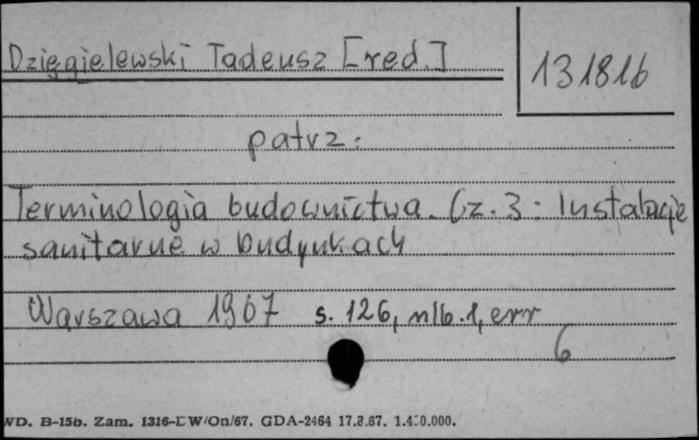 Dzięgielewski Tadeusz [red.]
131816
patrz:
Terminologia budownictwa. Cz. 3: Instalacje
sanitarne w budynkach
Warszawa 1967 s. 126, nlb. 1, err
6
WD. B-15b. Zam. 1316-DW/On/67. GDA-2464 17.8.67.